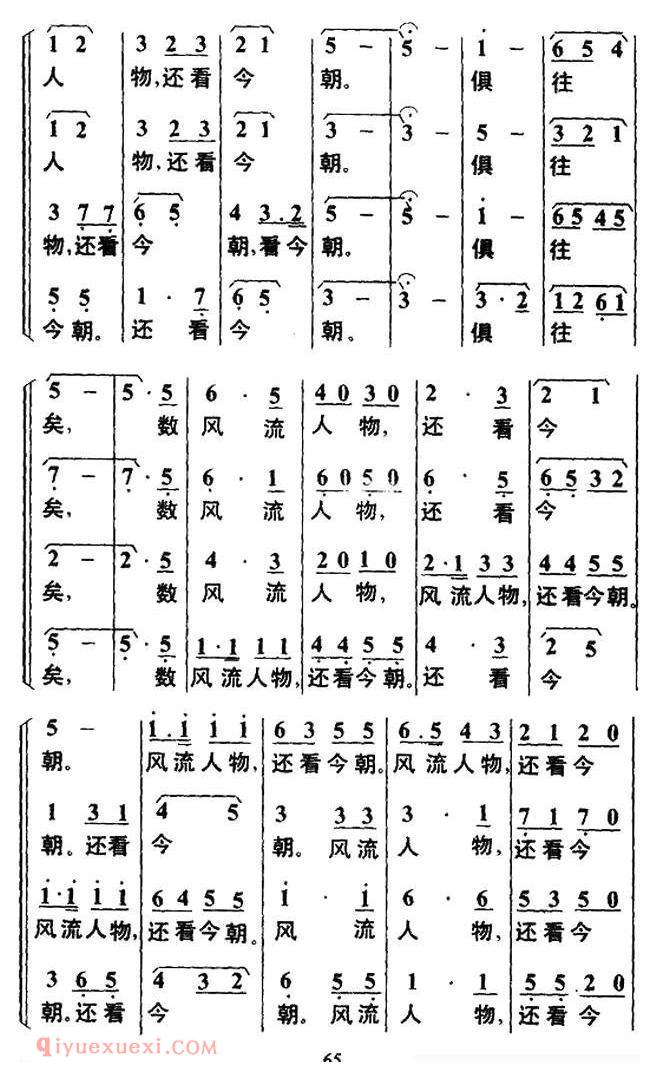 1 2 | 3 2 3 | 2 1 | 5 – | 5 – | i – | 6 5 4
人 物,还看 今 朝。 俱 往
1 2 | 3 2 3 | 2 1 | 3 – | 3 – | 5 – | 3 2 1
人 物,还看 今 朝。 俱 往
3 7 7 | 6 5 | 4 3.2 | 5 – | 5 – | i – | 6 5 4 5
物,还看 今 朝,看今 朝。 俱 往
5 5 | 1 · 7 | 6 5 | 3 – | 3 – | 3 · 2 | 1 2 6 1
今 朝。 还 看 今 朝。 俱 往
5 – | 5 · 5 | 6 · 5 | 4 0 3 0 | 2 · 3 | 2 1
矣, 数 风 流 人 物, 还 看 今
7 – | 7 · 5 | 6 · 1 | 6 0 5 0 | 6 · 5 | 6 5 3 2
矣, 数 风 流 人 物, 还 看 今
2 – | 2 · 5 | 4 · 3 | 2 0 1 0 | 2 · 1 3 3 | 4 4 5 5
矣, 数 风 流 人 物, 风流人物, 还看今朝。
5 – | 5 · 5 | 1 · 1 1 1 | 4 4 5 5 | 4 · 3 | 2 5
矣, 数 风流人物, 还看今朝。 还 看 今
5 – | i . i i i | 6 3 5 5 | 6 . 5 4 3 | 2 1 2 0
朝。 风流人物, 还看今朝。 风流人物, 还看今
1 3 1 | 4 5 | 3 3 3 | 3 · 1 | 7 1 7 0
朝。还看 今 朝。风流 人 物, 还看今
i · i i i | 6 4 5 5 | i · i | 6 · 6 | 5 3 5 0
风流人物, 还看今朝。 风 流 人 物, 还看今
3 6 5 | 4 3 2 | 6 5 5 | 1 · 1 | 5 5 . 2 0
朝。还看 今 朝。风流 人 物, 还看今
qiyuexuexi.com
65